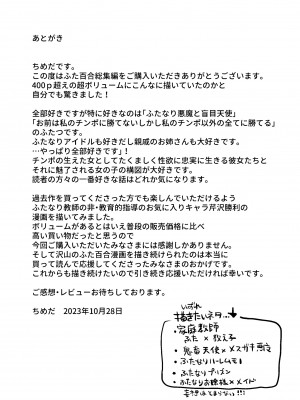 あとがき
ちめだです。
この度はふた百合総集編をご購入いただきありがとうございます。
400p超えの超ボリュームにこんなに描いていたのかと
自分でも驚きました！
全部好きですが特に好きなのは「ふたなり悪魔と盲目天使」
「お前は私のチンポに勝てないしかし私のチンポ以外の全てに勝てる」
のふたつです。
ふたなりアイドルも好きだし親戚のお姉さんも大好きです。
…やっぱり全部好きです」！
チンポの生えた女としてたくましく性欲に忠実に生きる彼女たちと
それに魅了される女の子の構図が大好きです。
読者の方々の一番好きな話はどれか気になります。
過去作を買ってくださった方でも楽しんでいただけるよう
ふたなり教師の非・教育的指導のお気に入りキャラ芹沢勝利の
漫画を描いてみました。
ボリュームがあるとはいえ普段の販売価格に比べ
高い買い物だったと思うので
今回ご購入いただいたみなさまには感謝しかありません。
そして沢山のふた百合漫画を描き続けられたのは本当に
買って読んで応援してくださったみなさまのおかげです。
これからも描き続けたいので引き続き応援いただければ幸いです。
ご感想・レビューお待ちしております。
ちめだ　2023年10月28日
いずれ
描きたいネタ…
・家庭教師
ふた×教え子
・鬼畜天使×メスガキ悪魔
・ふたなりハーレムモノ
・ふたなりプリズン
・ふたなりお嬢様×メイド
妄想は止まらない!!!